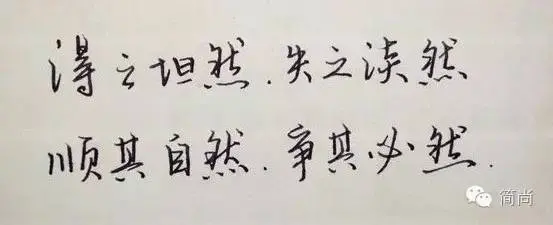 得之坦然.失之淡然
顺其自然.争其必然.
简尚